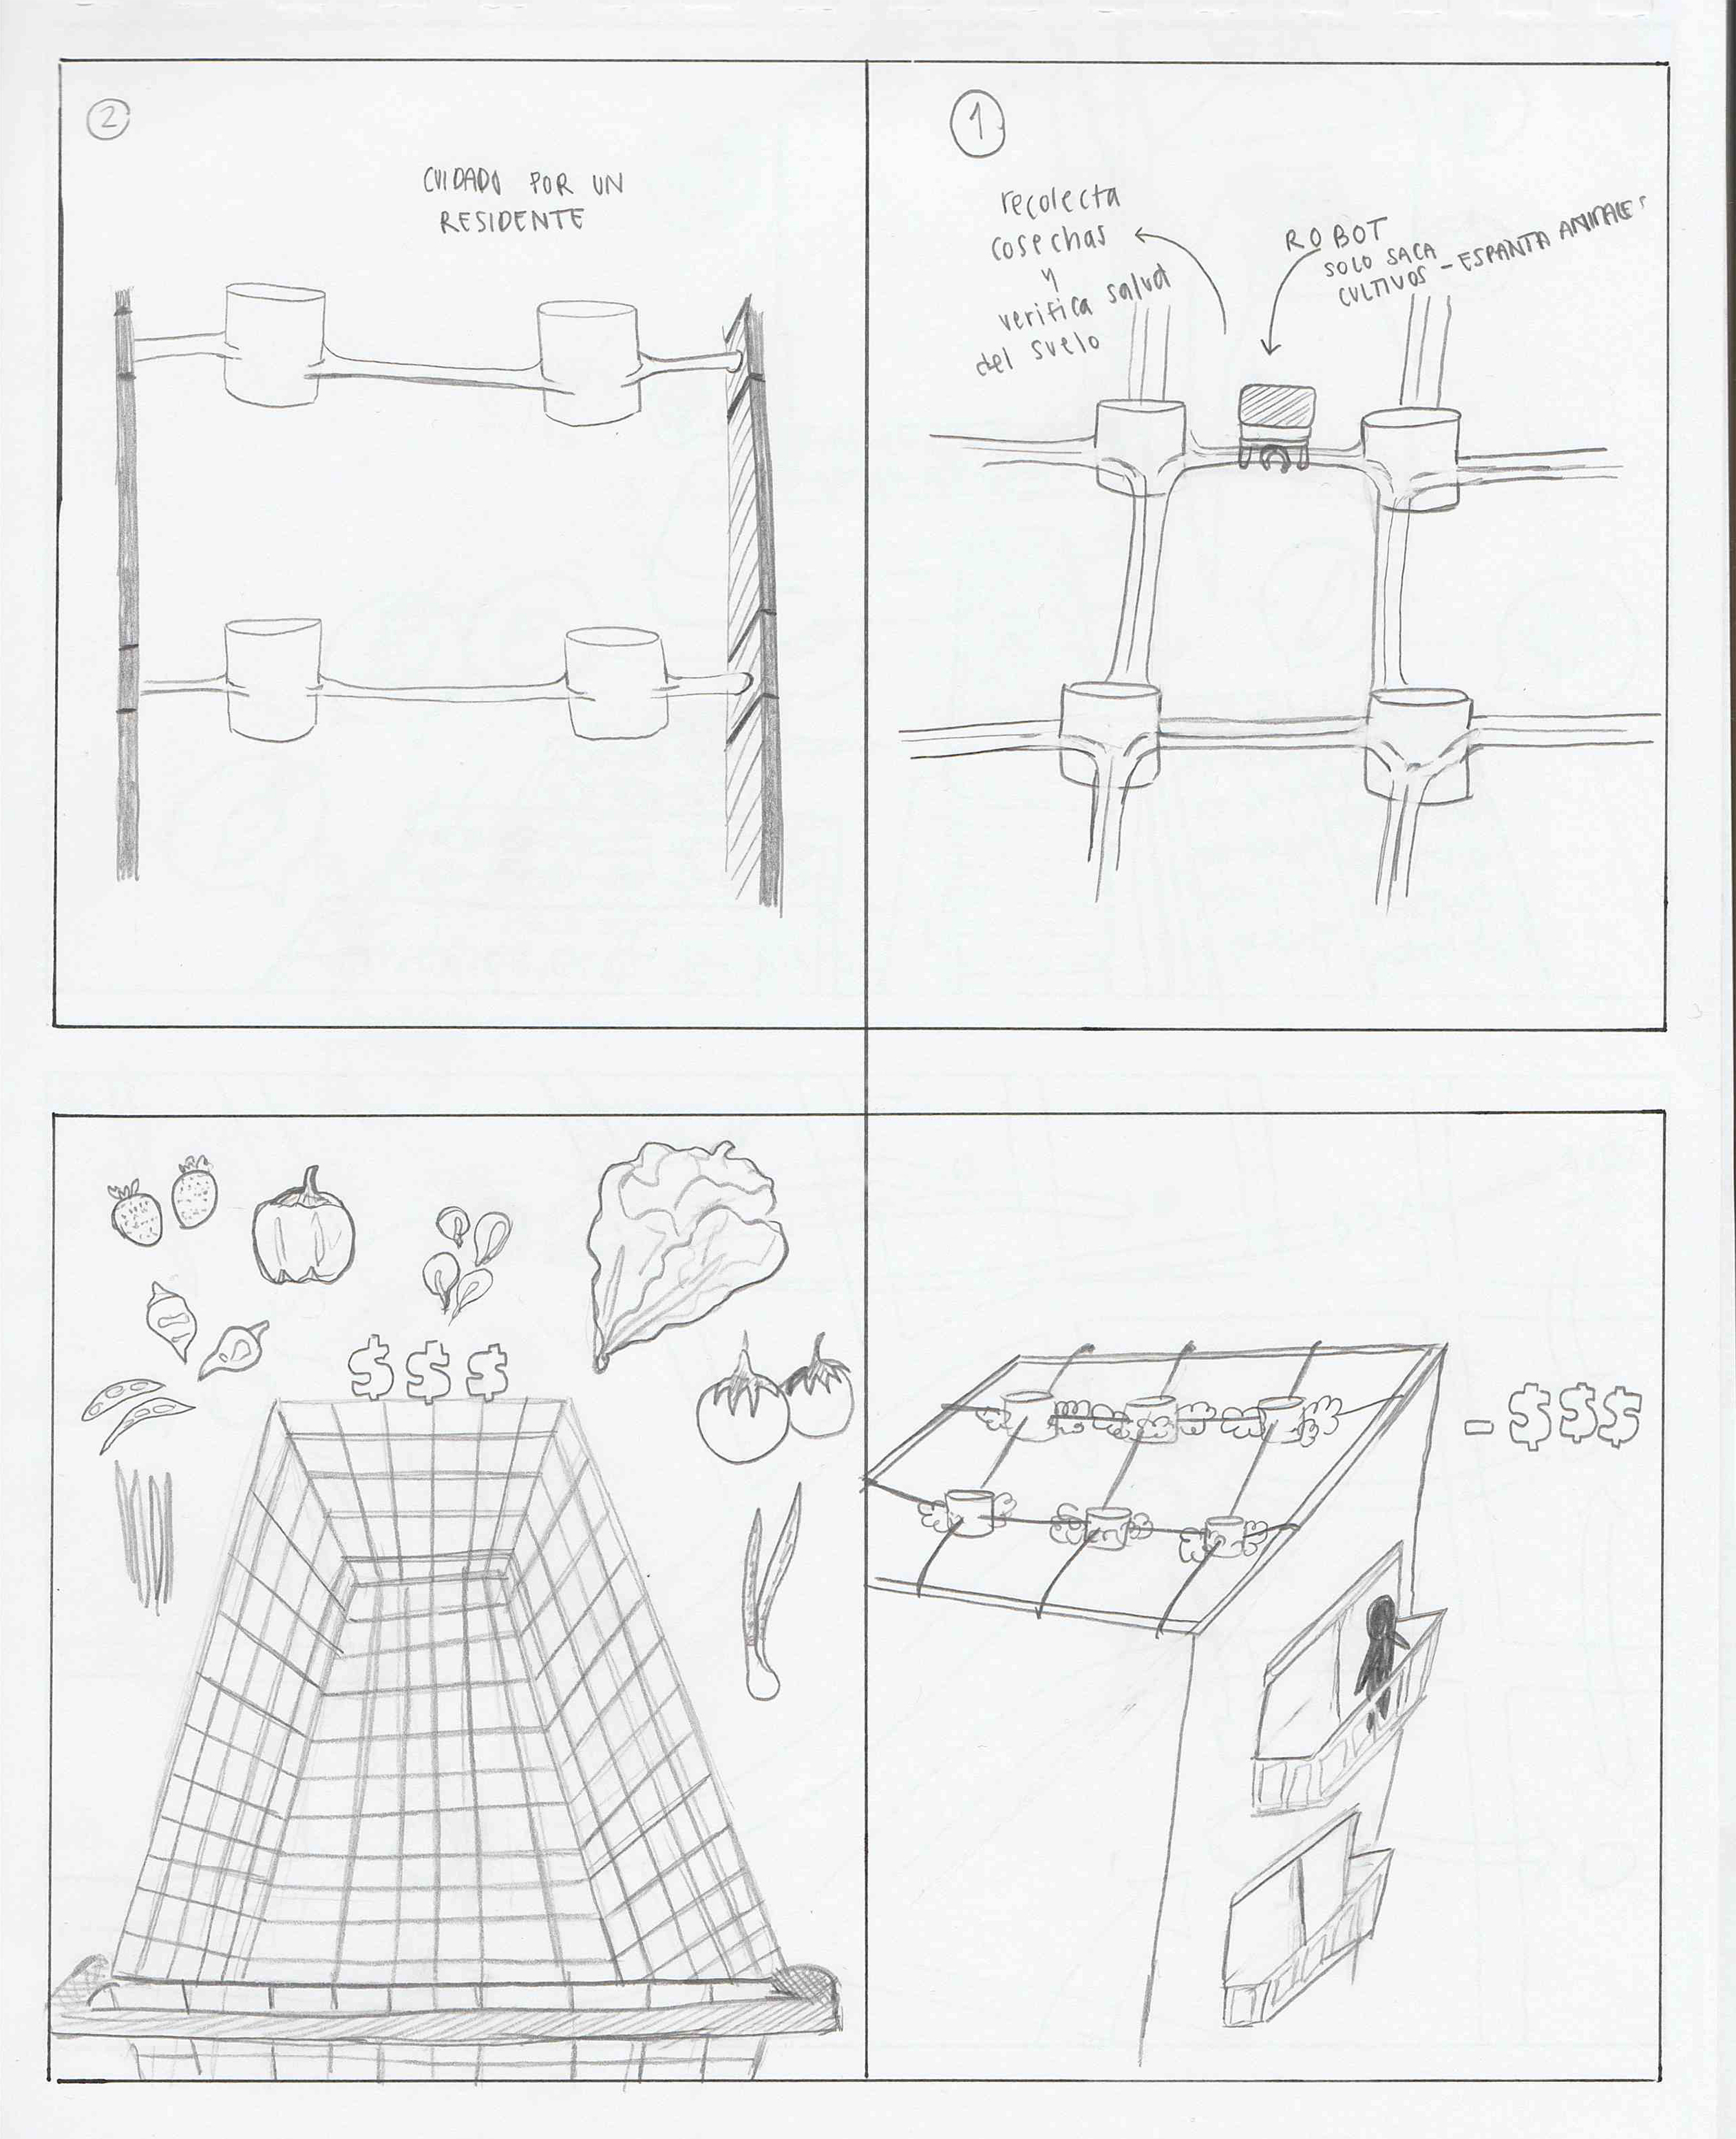 2
CUIDADO POR UN
RESIDENTE
1
recolecta
cosechas
y
verifica salud
del suelo
ROBOT
SOLO SACA
CULTIVOS - ESPANTA ANIMALES
$$$
-$$$